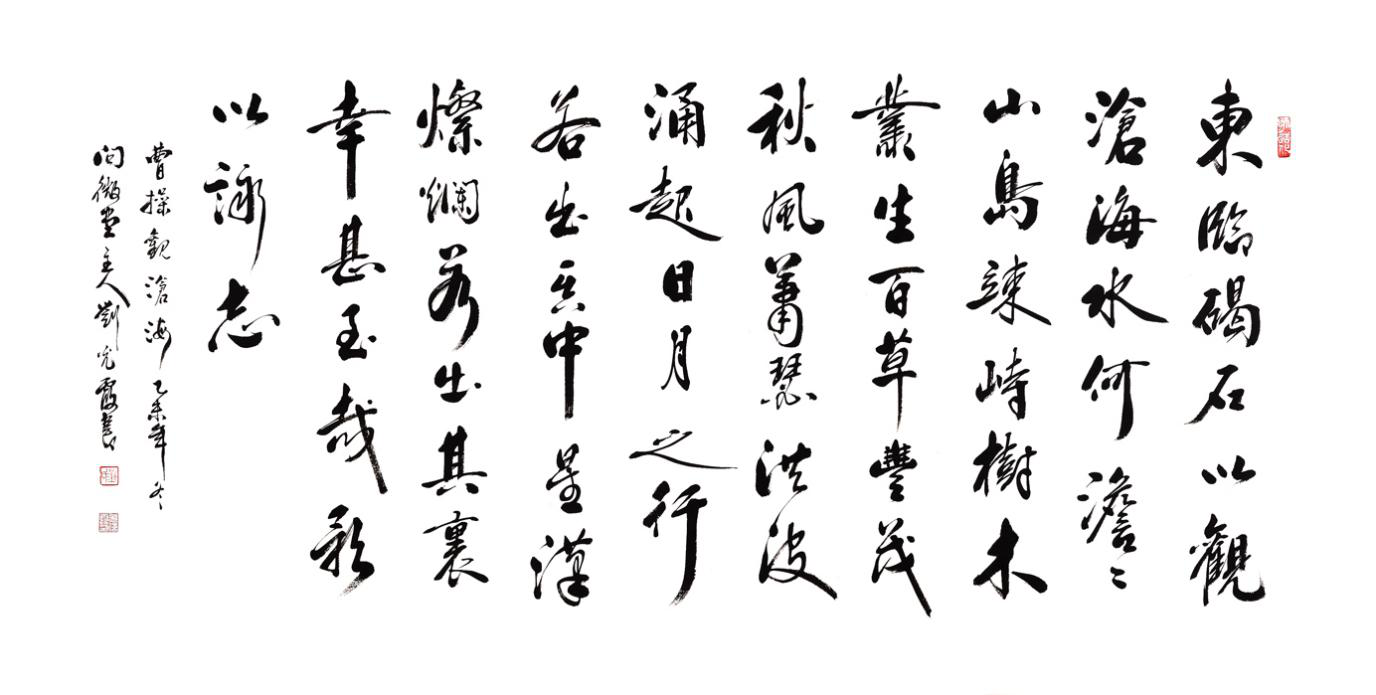 東臨碣石以觀
滄海水何澹々
山島竦峙樹木
叢生百草豐茂
秋風蕭瑟洪波
涌起日月之行
若出其中星漢
燦爛若出其裏
幸甚至哉歌
以詠志
曹操觀滄海 乙未年冬
問微堂主人劉光霞書